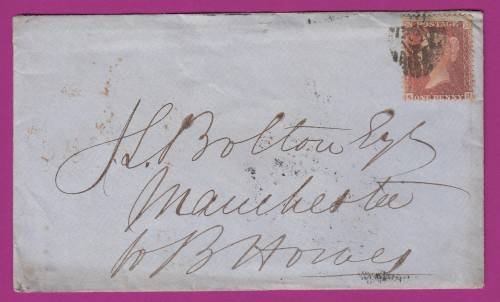 POSTAGE
ONE PENNY
J.L. Bolton Esq
Manchester
to B Howes